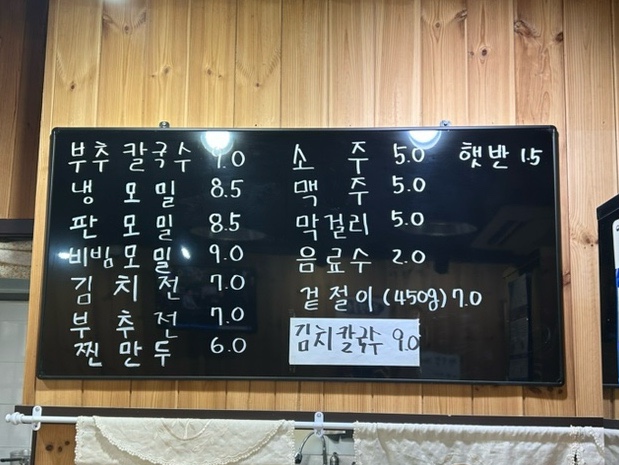 부추칼국수 9.0
냉모밀 8.5
판모밀 8.5
비빔모밀 9.0
김치전 7.0
부추전 7.0
찐만두 6.0
소주 5.0 햇반 1.5
맥주 5.0
막걸리 5.0
음료수 2.0
겉절이 (450g) 7.0
김치칼국수 9.0